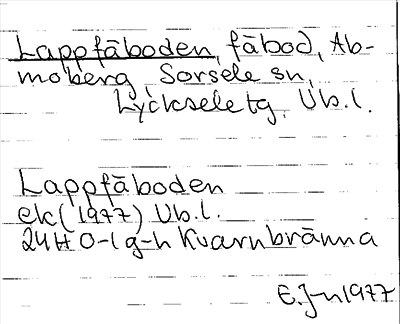 Lappfäboden, fäbod, Ab-
moberg, Sorsele sn,
Lycksele tg. Vb.l.
Lappfäboden
ek (1977) Vb.l.
24H 0-1 g-h Kvarnbränna
E.J-n 1977